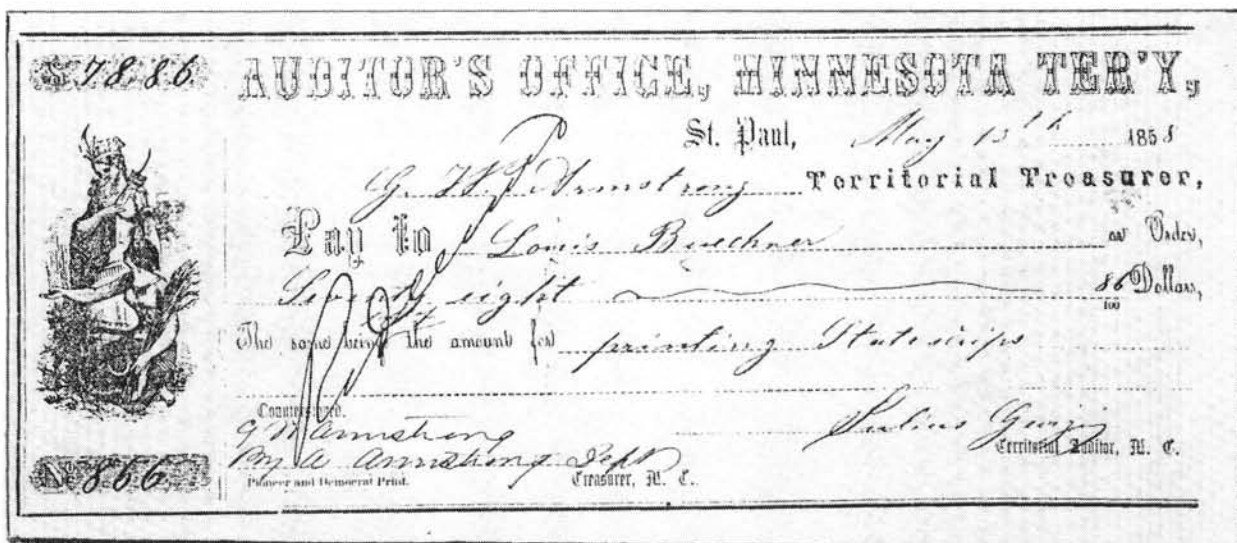 Dol. 78.86
AUDITOR'S OFFICE, MINNESOTA TER'Y,
St. Paul, May 13th 1858
G. W. Armstrong Territorial Treasurer,
Pay to Louis Buechner or Order,
Seventy eight 86/100 Dollars,
The same being the amount for printing State scrips
Countersigned.
G W Armstrong
By A Armstrong Dept
Treasurer, M. T.
Julius Georgii
Territorial Auditor, M. T.
No 866
Pioneer and Democrat Print.